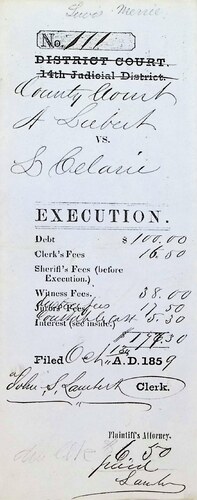 No. 111
DISTRICT COURT.
14th Judicial District.
County Court
A Siebert
VS.
S Celarie
EXECUTION.
Debt $ 100.00
Clerk's Fees 16.50
Sheriff's Fees (before
Execution.)
Witness Fees, 38.00
Jurors' Fees, 17.50
Interest (see inside.) 5.30
$ 177.30
Filed Oct 13th A.D. 1859
John S. Lambert Clerk.
Plaintiff's Attorney.
6.50
paid